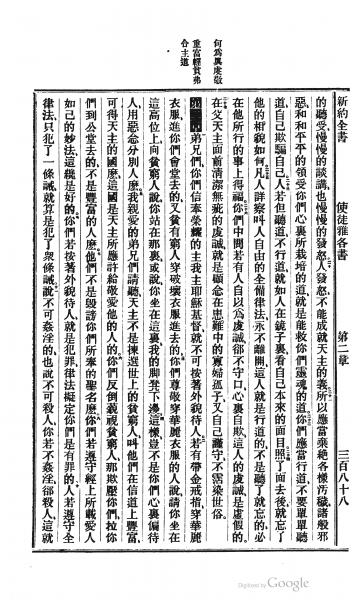 新約全書
使徒雅各書
第二章
三百八十八
何為眞虔敬
重富輕貧弗
合主道
的聽受、慢慢的談講、也慢慢的發怒、人發怒、不能成就天主的義、所以應當棄絕各樣汚穢、諸般邪
惡、和和平平的領受你們心裏所栽培的道、就是能救你們靈魂的道、你們應當行道、不要單單聽
道、自己欺騙自己、人若但聽道、不行道、就如人在鏡子裏看自己本來的面目、照了面去後、就忘了
他的相貌如何、凡人詳察叫人自由的全備律法、永不離開、這人就是行道的、不是聽了就忘的、必
在他所行的事上得福、你們中間若有人自以爲虔誠、卻不守口、心裏自欺、這人的虔誠是虛假的、
在父天主面前淸潔無玷的虔誠、就是顧念在患難中的寡婦孤子、又自己謹守、不霑染世俗、
弟兄們、你們信奉榮耀的主、我主耶穌基督、就不可按著外貌待人、若有帶金戒指、穿華麗
衣服、進你們會堂去的、又有貧窮人穿破壞衣服進去的、你們尊敬穿華麗衣服的人、說請你坐在
這高位上、向貧窮人說、你站在那裏、或說、你坐在這裏我的脚凳下邊、這樣、豈不是你們心裏偏待
人、用惡念分別人麽、我親愛的弟兄們請聽、天主不是揀選世上的貧窮人、叫他們在信道上豐富、
可得天主的國麽、這國是天主所應許給敬愛他的人的、你們反倒藐視貧窮人、那欺壓你們、拉你
們到公堂去的、不是豐富的人麽、他們不是毀謗你們所奉的聖名麽、你們若遵守經上所載愛人
如己的妙法、這纔是好的、你們若按著外貌待人、就是犯罪、律法擬定你們是有罪的、人若遵守全
律法、只犯了一條誡、就算是犯了衆條誡、說不可姦淫的、也說不可殺人、你若不姦淫、卻殺人、這就
Digitized by Google